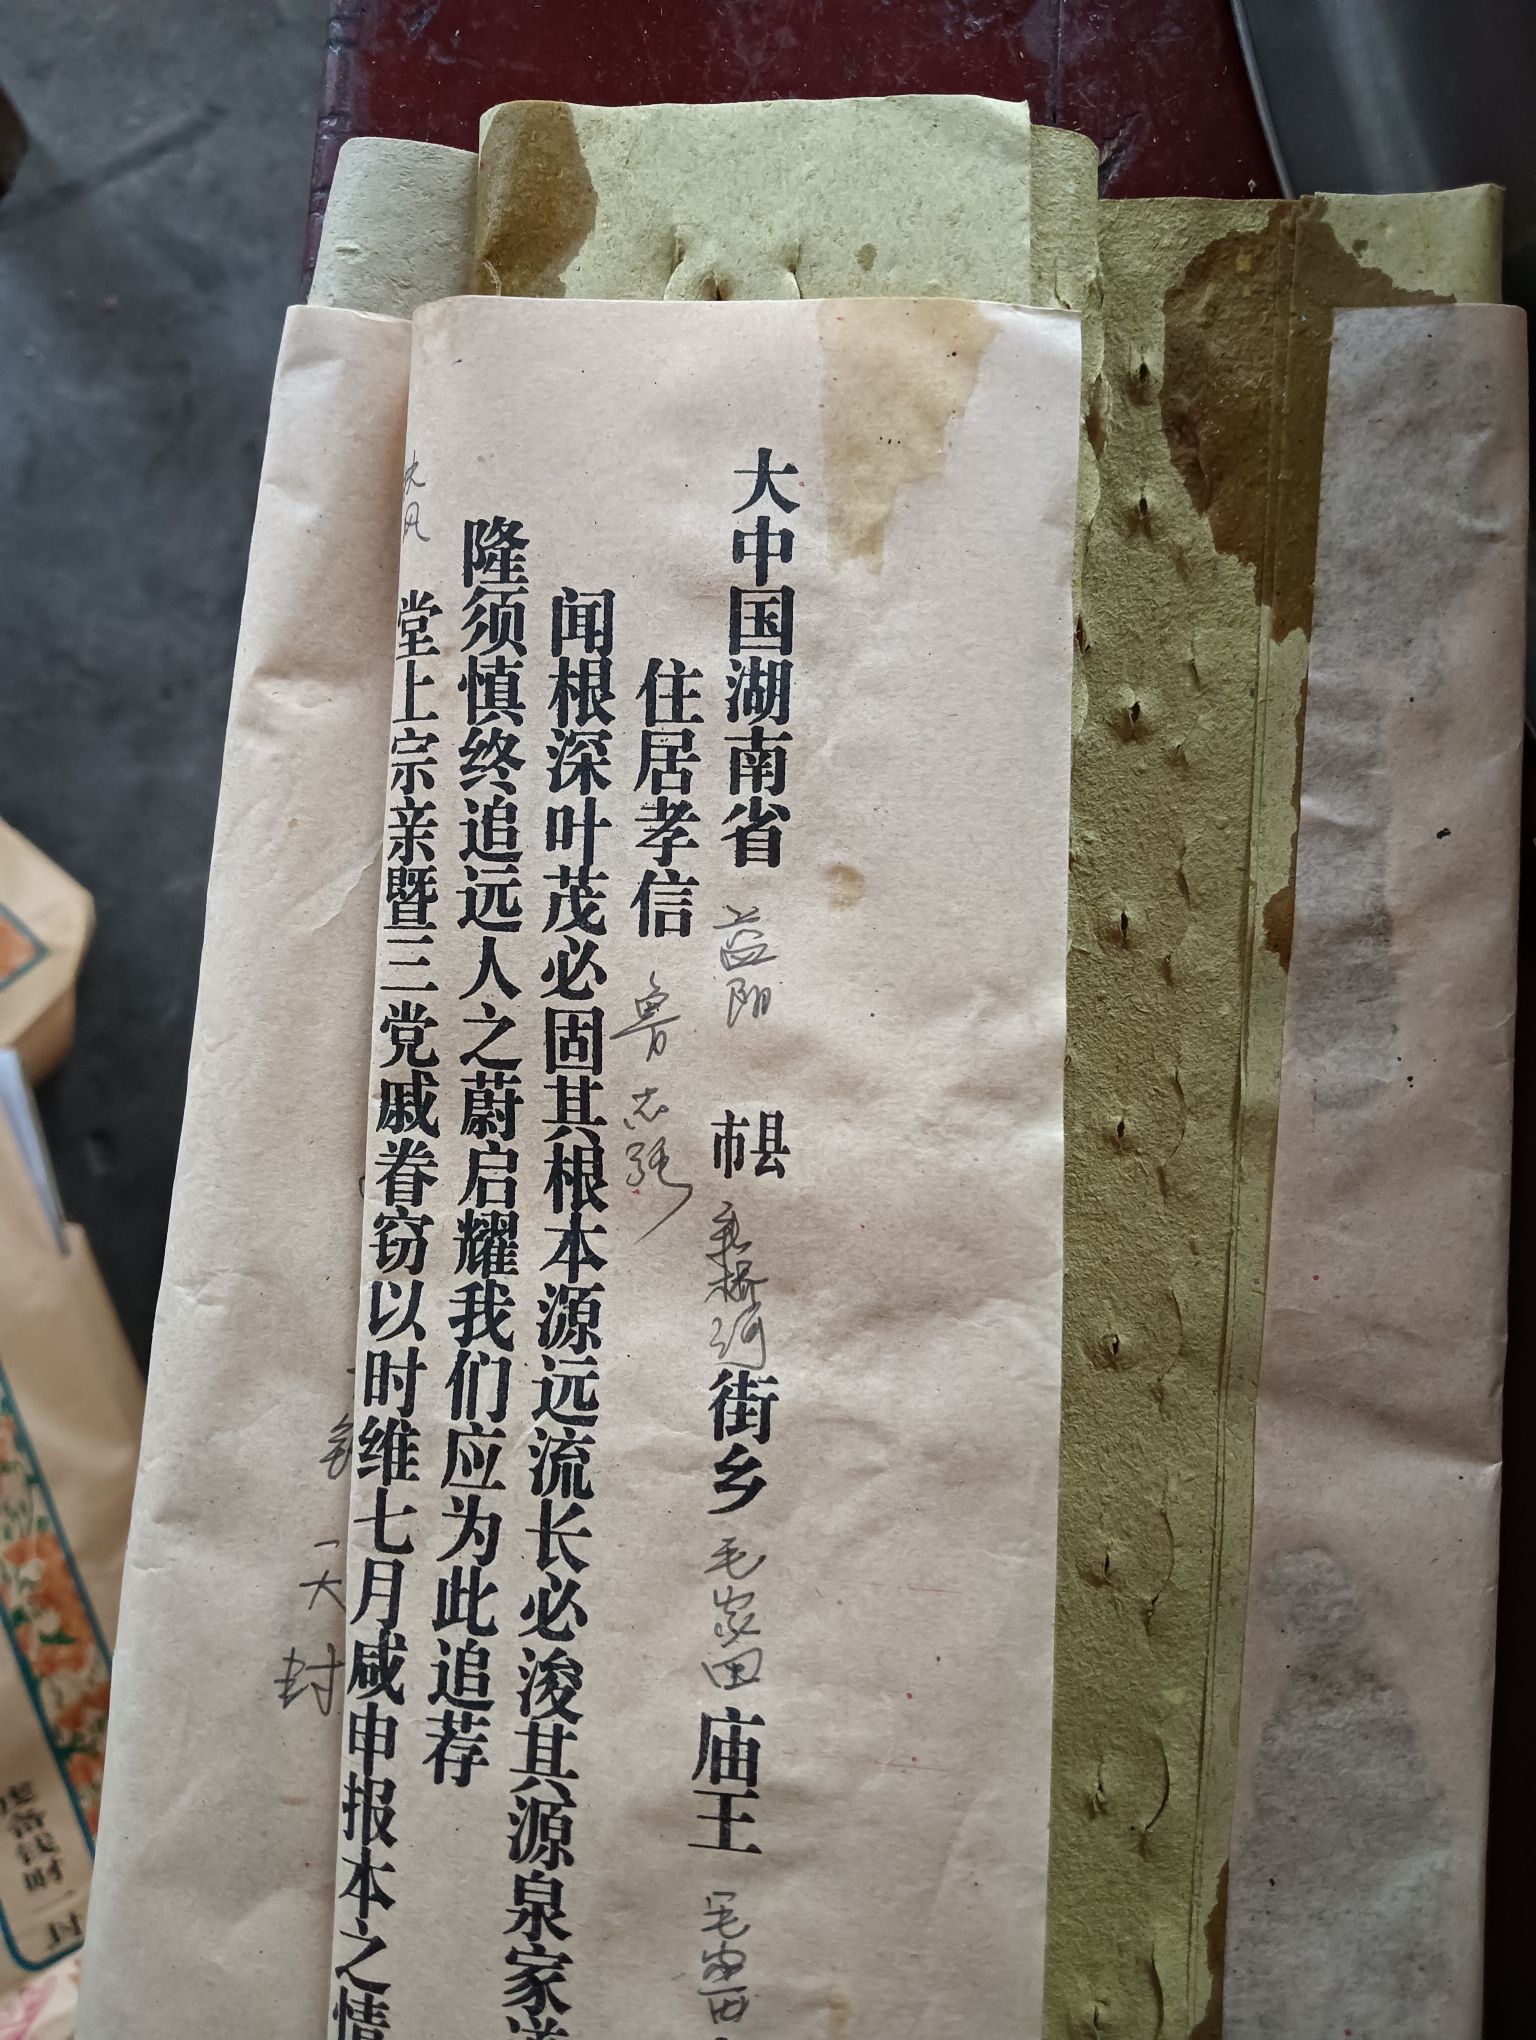 大中国湖南省 益阳 市县 新桥河 街乡 毛家田 庙王 毛家田
住居孝信 鲁志强
闻根深叶茂必固其根本源远流长必浚其源泉家道
隆须慎终追远人之蔚启耀我们应为此追荐
堂上宗亲暨三党戚眷窃以时维七月咸申报本之情
一大封
钱财一封